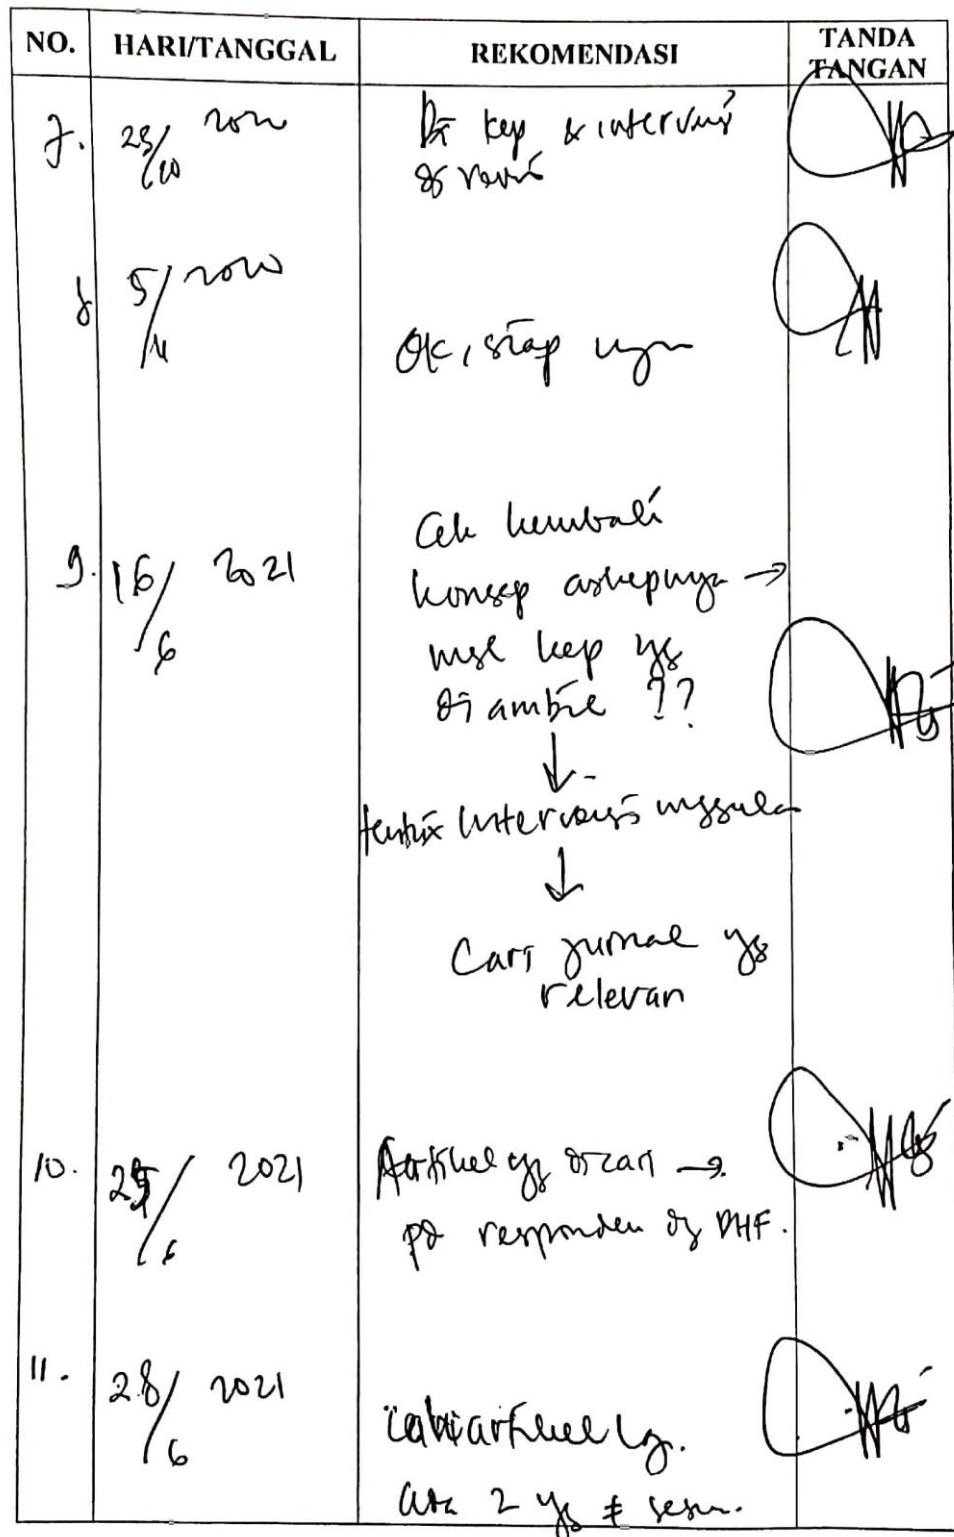 NO. HARI/TANGGAL REKOMENDASI TANDA TANGAN
7. 23/10 2020 Dx kep & intervensi
di revisi
8 5/11 2020
Ok, siap ujian
9. 16/6 2021 Cek kembali
konsep askepnya →
msl kep yg
diambil ??
↓
intervensi unggulan
↓
Cari jurnal yg
relevan
10. 25/6 2021 Artikel yg dicari →
pd responden dg DHF.
11. 28/6 2021
artikel lg.
ada 2 yg ≠ sesuai.